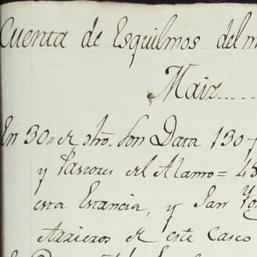 Cuenta de Esquilmos del m
Maiz.....
En 30 „ de otro. son Data 130 f
y Pastores del Alamo = 48
esta Estancia, y San Yg
Arrieros de este Casco